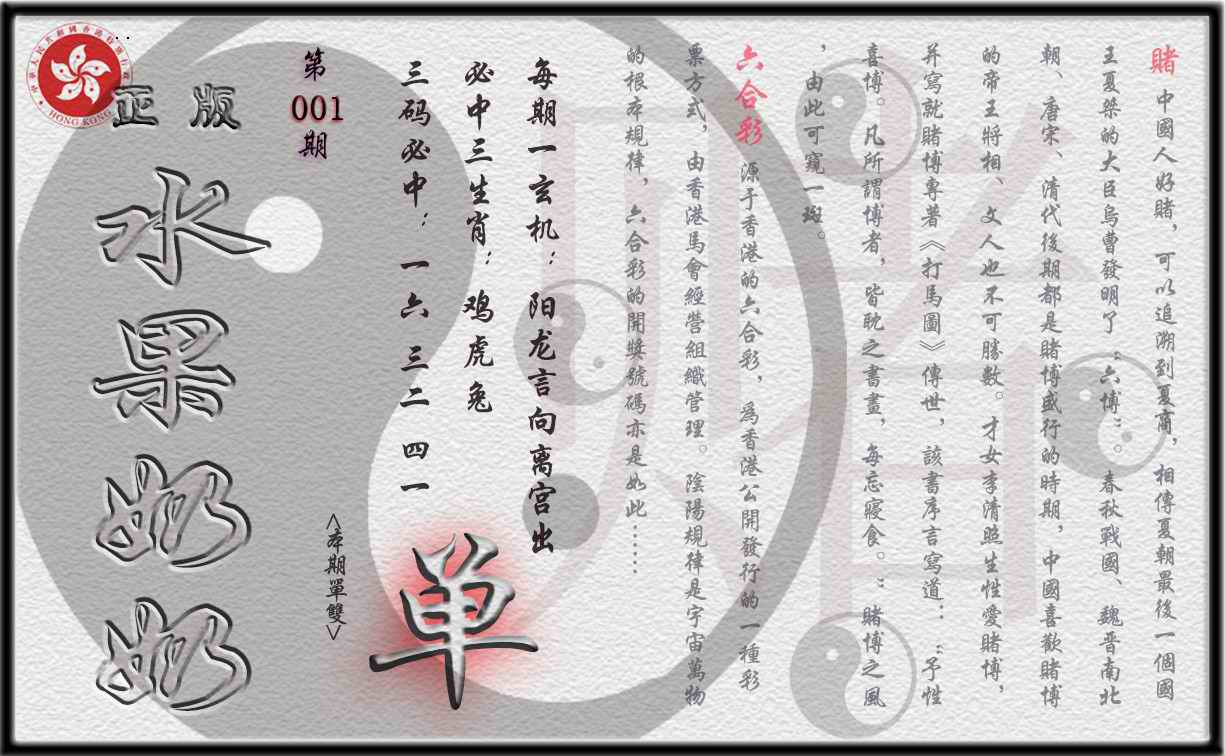 賭 中國人好賭，可以追溯到夏商，相傳夏朝最後一個國
王夏桀的大臣烏曹發明了“六博”。春秋戰國、魏晋南北
朝、唐宋、清代後期都是賭博盛行的時期，中國喜歡賭博
的帝王將相、文人也不可勝數。才女李清照生性愛賭博，
并寫就賭博專著《打馬圖》傳世，該書序言寫道：“予性
喜博。凡所謂博者，皆耽之書畫，每忘寢食。”賭博之風
，由此可窺一斑。
六合彩 源于香港的六合彩，爲香港公開發行的一種彩
票方式，由香港馬會經營組織管理。陰陽規律是宇宙萬物
的根本規律，六合彩的開獎號碼亦是如此……
每期一玄机：阳龙言向离宫出
必中三生肖：鸡虎兔
三码必中：一六 三二 四一
单
<本期單雙>
第
001
期
正版
水果奶奶
HONG KONG